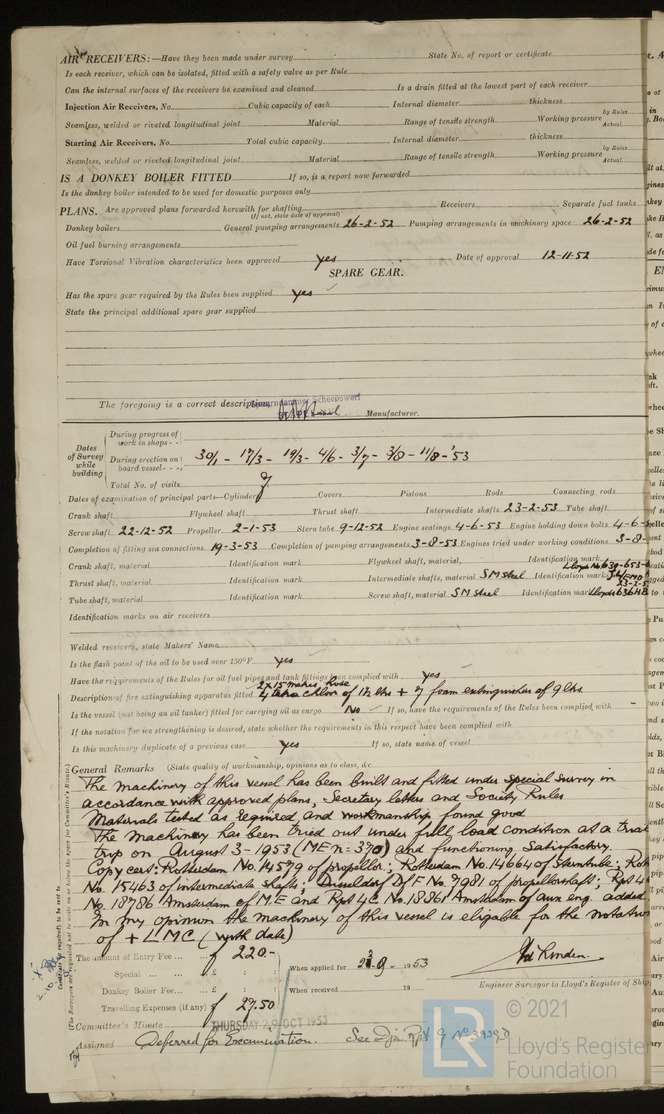 AIR RECEIVERS:—Have they been made under survey State No. of report or certificate
Is each receiver, which can be isolated, fitted with a safety valve as per Rule
Can the internal surfaces of the receivers be examined and cleaned Is a drain fitted at the lowest part of each receiver
Injection Air Receivers, No. Cubic capacity of each Internal diameter thickness
Seamless, welded or riveted longitudinal joint Material Range of tensile strength Working pressure by Rules Actual
Starting Air Receivers, No. Total cubic capacity Internal diameter thickness
Seamless, welded or riveted longitudinal joint Material Range of tensile strength Working pressure by Rules Actual
IS A DONKEY BOILER FITTED If so, is a report now forwarded
Is the donkey boiler intended to be used for domestic purposes only
PLANS. Are approved plans forwarded herewith for shafting Receivers Separate fuel tanks
(If not, state date of approval)
Donkey boilers General pumping arrangements 26-2-52 Pumping arrangements in machinery space 26-2-52
Oil fuel burning arrangements
Have Torsional Vibration characteristics been approved yes Date of approval 12-11-52
SPARE GEAR.
Has the spare gear required by the Rules been supplied yes
State the principal additional spare gear supplied
The foregoing is a correct description, Scheepswerf
Manufacturer.
Dates of Survey while building
During progress of work in shops - -
During erection on board vessel - - - 30/1 - 17/3 - 19/3 - 4/6 - 3/7 - 3/8 - 11/8 - '53
Total No. of visits 7
Dates of examination of principal parts—Cylinders Covers Pistons Rods Connecting rods
Crank shaft Flywheel shaft Thrust shaft Intermediate shafts 23-2-53 Tube shaft
Screw shaft 22-12-52 Propeller 2-1-53 Stern tube 9-12-52 Engine seatings 4-6-53 Engine holding down bolts 4-6-
Completion of fitting sea connections 19-3-53 Completion of pumping arrangements 3-8-53 Engines tried under working conditions 3-8-
Crank shaft, material Identification mark Flywheel shaft, material Identification mark
Thrust shaft, material Identification mark Intermediate shafts, material SM steel Identification marks
Tube shaft, material Identification mark Screw shaft, material SM steel Identification mark
Identification marks on air receivers
Welded receivers, state Makers' Name
Is the flash point of the oil to be used over 150°F. yes
Have the requirements of the Rules for oil fuel pipes and tank fittings been complied with yes
Description of fire extinguishing apparatus fitted foam extinguisher of 9 lts.
Is the vessel (not being an oil tanker) fitted for carrying oil as cargo No If so, have the requirements of the Rules been complied with
If the notation for ice strengthening is desired, state whether the requirements in this respect have been complied with
Is this machinery duplicate of a previous case yes If so, state name of vessel
General Remarks (State quality of workmanship, opinions as to class, &c.
The machinery of this vessel has been built and fitted under special survey in
accordance with approved plans, Secretary letters and Society Rules
Materials tested as required and workmanship found good
The machinery has been tried out under full load condition at a trial
trip on August 3-1953 (MEn=370) and functioning Satisfactory.
Copy cert: Rotterdam No. 14579 of propellor; Rotterdam No. 14664 of Sterntube; Rott
No. 15463 of intermediate shafts; Dusseldorf D/F No. 7981 of propellorshaft; Rpt 4
No. 18786 Amsterdam of M.E and Rpt 4C No. 18861 Amsterdam of aux eng. added.
In my opinion the machinery of this vessel is eligable for the notation
of + LMC (with date)
The amount of Entry Fee ... ƒ 220.-
Special ... ... £ : : When applied for 19 53
Donkey Boiler Fee ... £ : : When received 19
Travelling Expenses (if any) ƒ 27.50
Engineer Surveyor to Lloyd's Register of Ship
Committee's Minute THURSDAY 29 OCT 1953
Assigned Deferred for Examination.
© 2021
LR
Lloyd's Register
Foundation